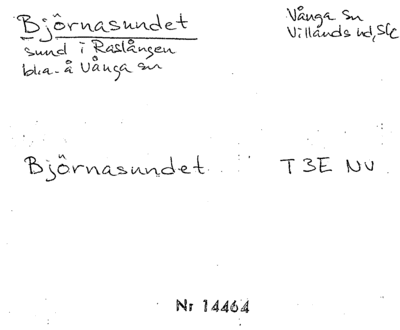 Björnasundet
sund i Raslången
bl.a. å Vånga sn
Vånga sn
Villands hd, Sk
Björnasundet T 3E NV
Nr 14464